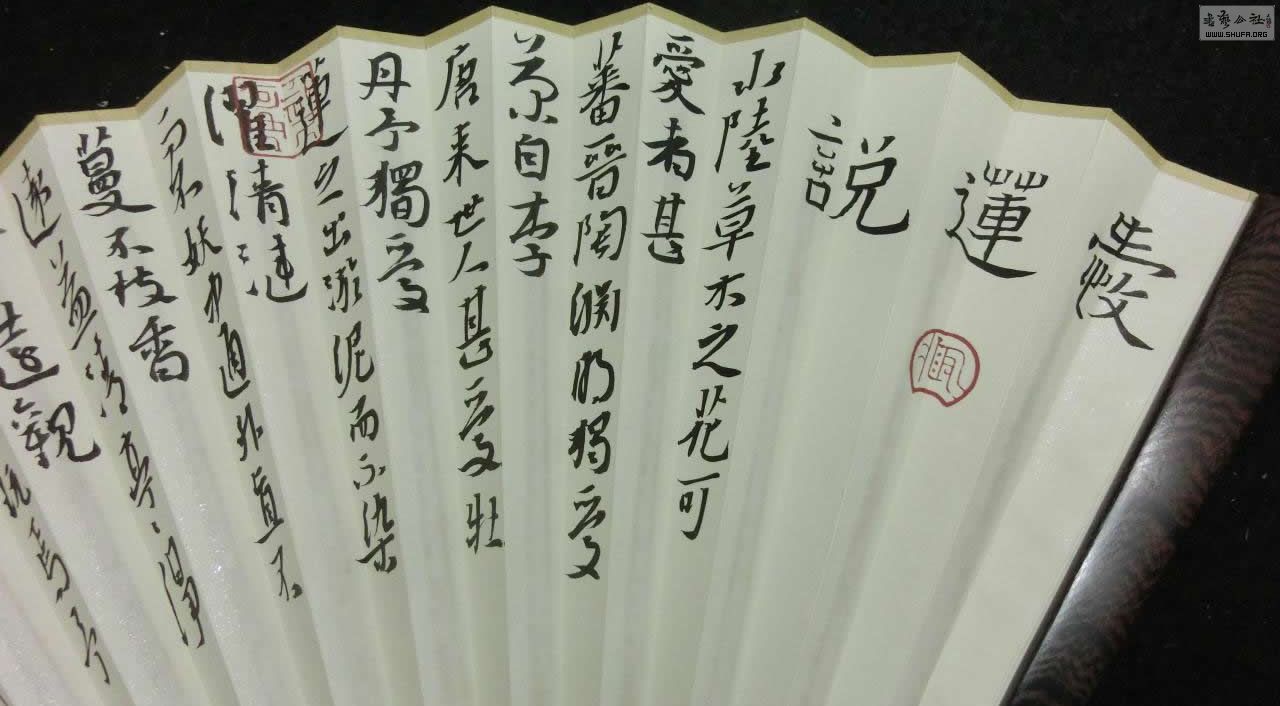 愛蓮說
水陸草木之花可
愛者甚
蕃晉陶淵明獨愛
菊自李
唐来世人甚愛牡
丹予獨愛
蓮之出淤泥而不染
濯清漣
而不妖中通外直不
蔓不枝香
遠益清亭〻淨
遠觀
玩焉予
书艺公社
WWW.SHUFA.ORG